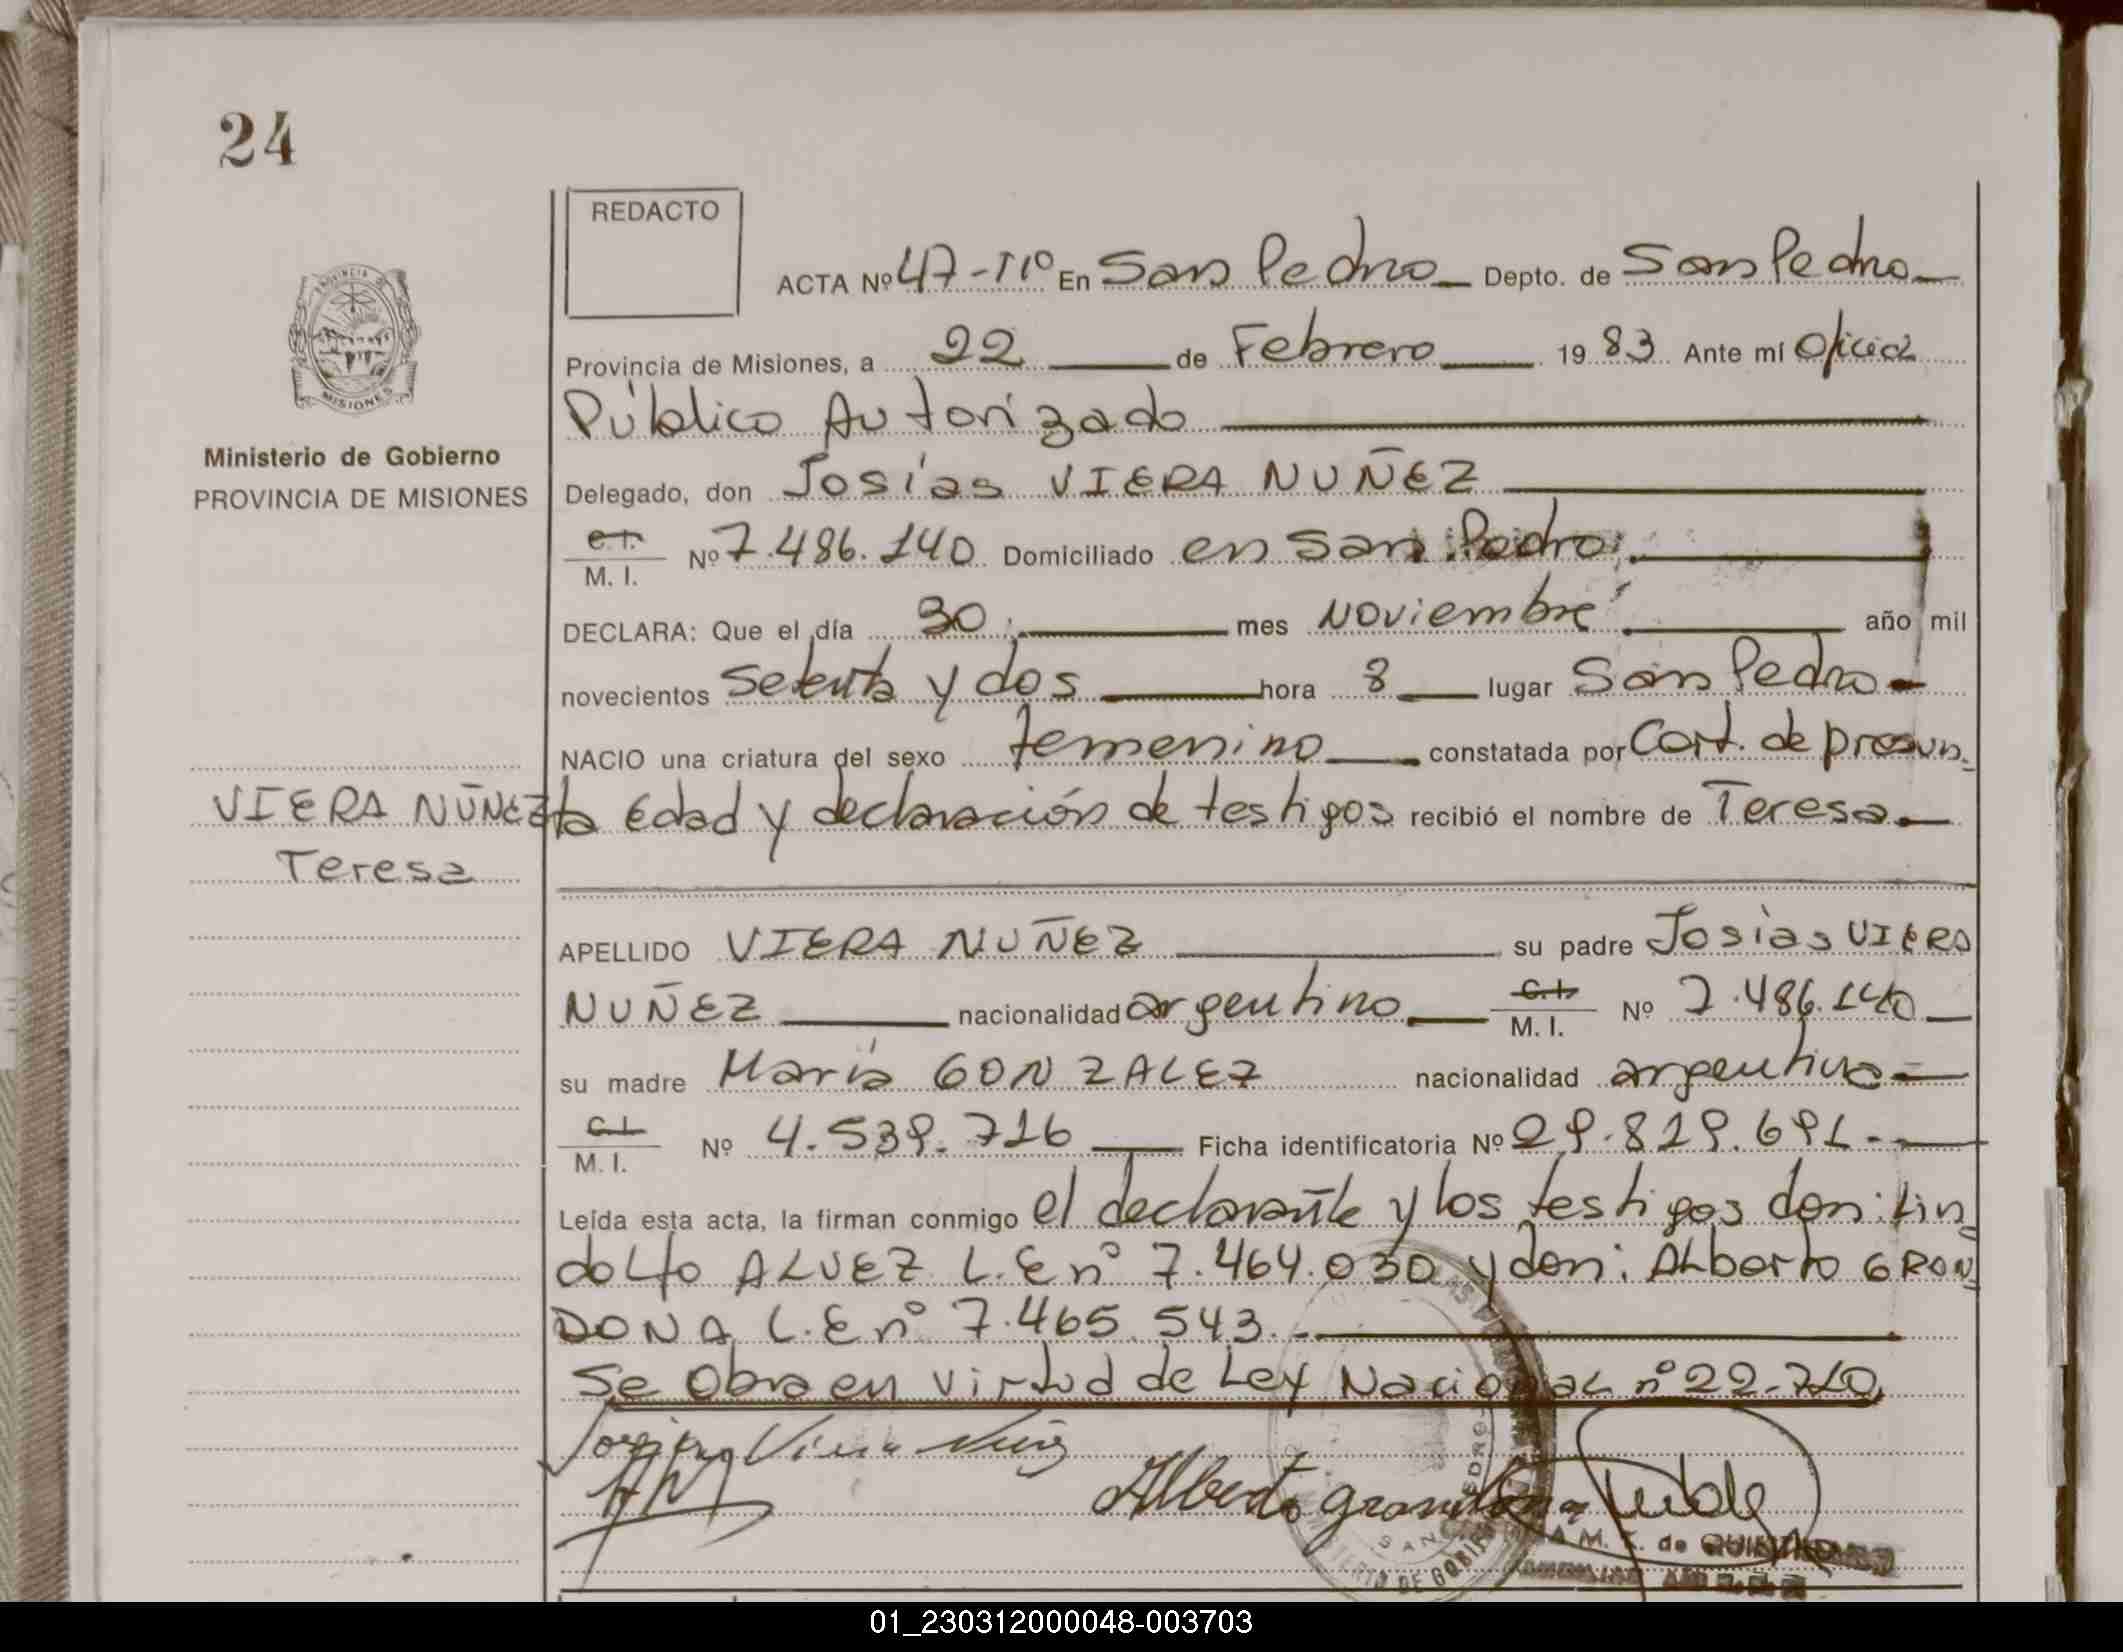 24
REDACTO
ACTA Nº 47-Tº En San Pedro Depto. de San Pedro
PROVINCIA DE
MISIONES
Provincia de Misiones, a 22 de Febrero 1983 Ante mí Oficial
Público Autorizado
Ministerio de Gobierno
PROVINCIA DE MISIONES
Delegado, don Josías VIERA NUÑEZ
C.I.
M. I. Nº 7.486.140 Domiciliado en San Pedro
DECLARA: Que el día 30 mes Noviembre año mil
novecientos Setenta y dos hora 8 lugar San Pedro
NACIO una criatura del sexo femenino constatada por Cert. de presun
VIERA NUÑEZ
Teresa
ta Edad y declaración de testigos recibió el nombre de Teresa
APELLIDO VIERA NUÑEZ su padre Josías VIERA
NUÑEZ nacionalidad argentino C.I. M. I. Nº 7.486.140
su madre María GONZALEZ nacionalidad argentina
C.I.
M. I. Nº 4.539.716 Ficha identificatoria Nº 29.819.691.-
Leída esta acta, la firman conmigo el declarante y los testigos don: Lin
dolfo ALVEZ L.E nº 7.464.030 y don: ALberto GRON
DONA L.E nº 7.465.543.-
Se Obra en virtud de Ley Nacional nº 22.710
Viera
Alberto Grondona
SAN PEDRO
MINISTERIO DE GOBIERNO
M. T. de
01_230312000048-003703